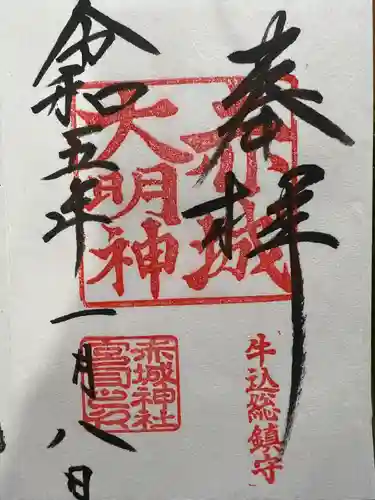 奉拝
赤城
大明神
牛込総鎮守
赤城神社
令和五年一月八日